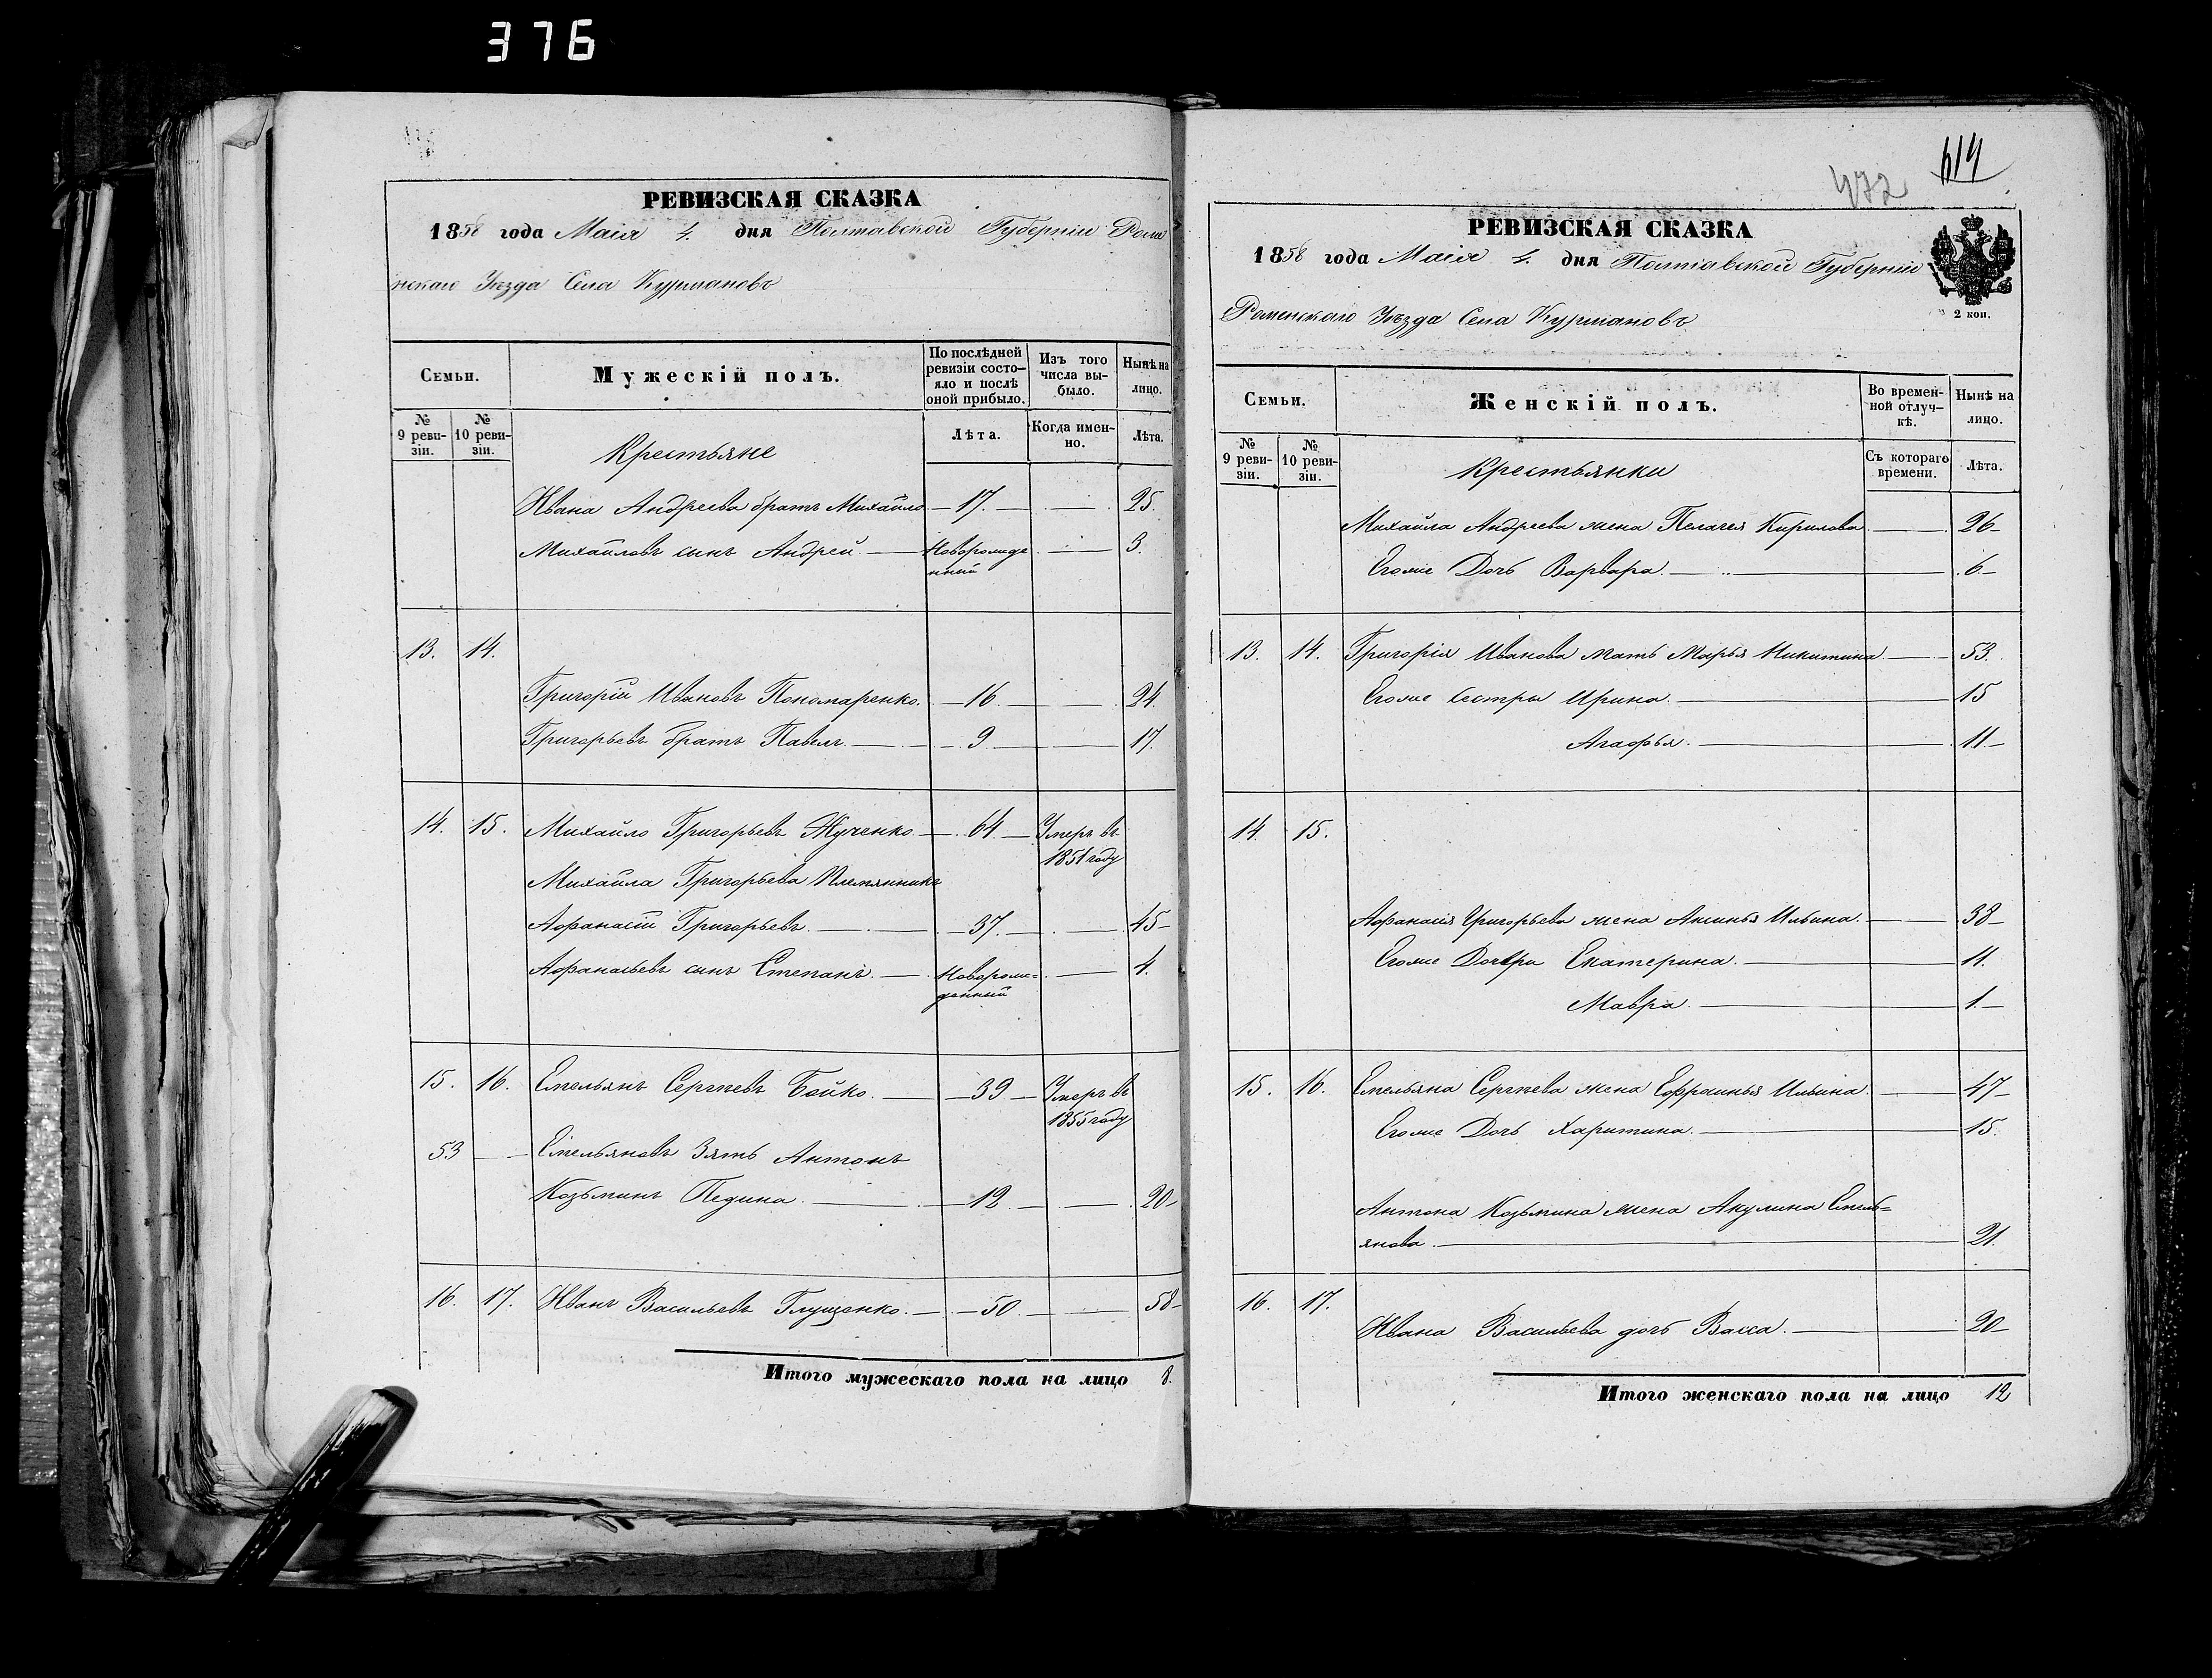 376
РЕВИЗСКАЯ СКАЗКА
1858 года Маія 4. дня Полтавской Губерніи Роме
нскаго Уѣзда Села Курмановъ
Семьи.
Мужескій полъ.
По послѣдней ревизіи состо-яло и послѣ оной прибыло.
Изъ того числа вы-было.
Нынѣ на лицо.
№ 9 реви-зіи.
№ 10 реви-зіи.
Крестьяне
Лѣта.
Когда имен-но.
Лѣта.
Ивана Андреева братъ Михайло — 17. — — 25.
Михайловъ сынъ Андрей. — Новорожде — 3.
нный
13. 14.
Григорій Ивановъ Пономаренко. — 16. — 24.
Григорьевъ братъ Павелъ. — 9 — 17.
14. 15. Михайло Григорьевъ Жученко — 64 — Умеръ въ
1851 году
Михайла Григорьева Племянникъ
Афанасій Григорьевъ. — 37. — 45-
Афанасьевъ сынъ Степанъ. — Новорож= — 4.
денный
15. 16. Емельянъ Сергѣевъ Бойко. — 39 — Умеръ въ
1855 году
53 — Емельяновъ Зять Антонъ
Козьминъ Педина. — 12. — 20-
16. 17. Иванъ Васильевъ Глущенко. — 50. — 58-
Итого мужескаго пола на лицо 8.
472
619
РЕВИЗСКАЯ СКАЗКА
1858 года Маія 4. дня Полтавской Губерніи
Роменскаго Уѣзда Села Курмановъ
2 коп.
Семьи.
Женскій полъ.
Во времен-ной отлуч-кѣ.
Нынѣ на лицо.
№ 9 реви-зіи.
№ 10 реви-зіи.
Крестьянки
Съ котораго времени.
Лѣта.
Михайла Андреева жена Пелагея Кирилова — 26-
Егоже Дочь Варвара. — 6-
13. 14. Григорія Иванова мать Марья Никитина. — 53.
Егоже Сестры Ирина. — 15
Агафья. — 11-
14. 15.
Афанасія Григорьева жена Аксинья Ильина. — 38-
Егоже Дочери Екатерина. — 11.
Мавра. — 1.-
15. 16. Емельяна Сергѣева жена Ефросинья Ильина. — 47-
Егоже Дочь Харитина. — 15.
Антона Козьмина жена Акулина Емель=
янова. — 21.
16. 17.
Ивана Васильева дочь Васса. — 20-
Итого женскаго пола на лицо 12